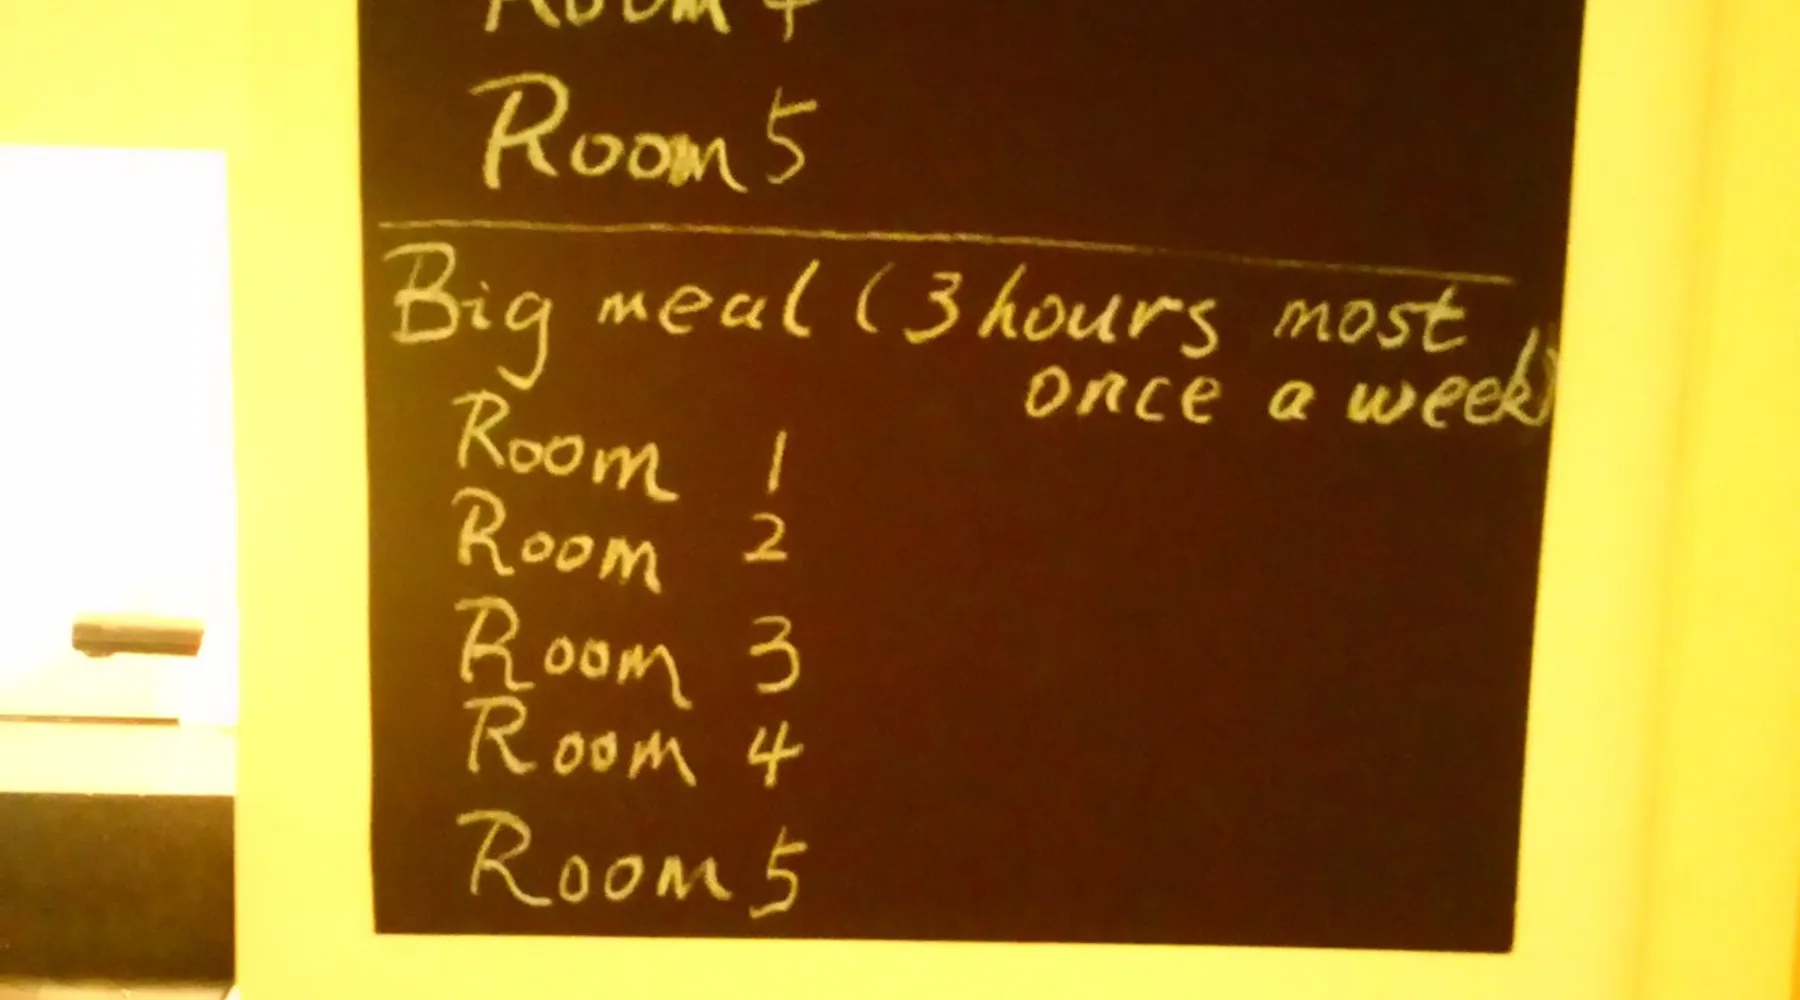 Room 4
Room 5
Big meal (3 hours most
once a week)
Room 1
Room 2
Room 3
Room 4
Room 5